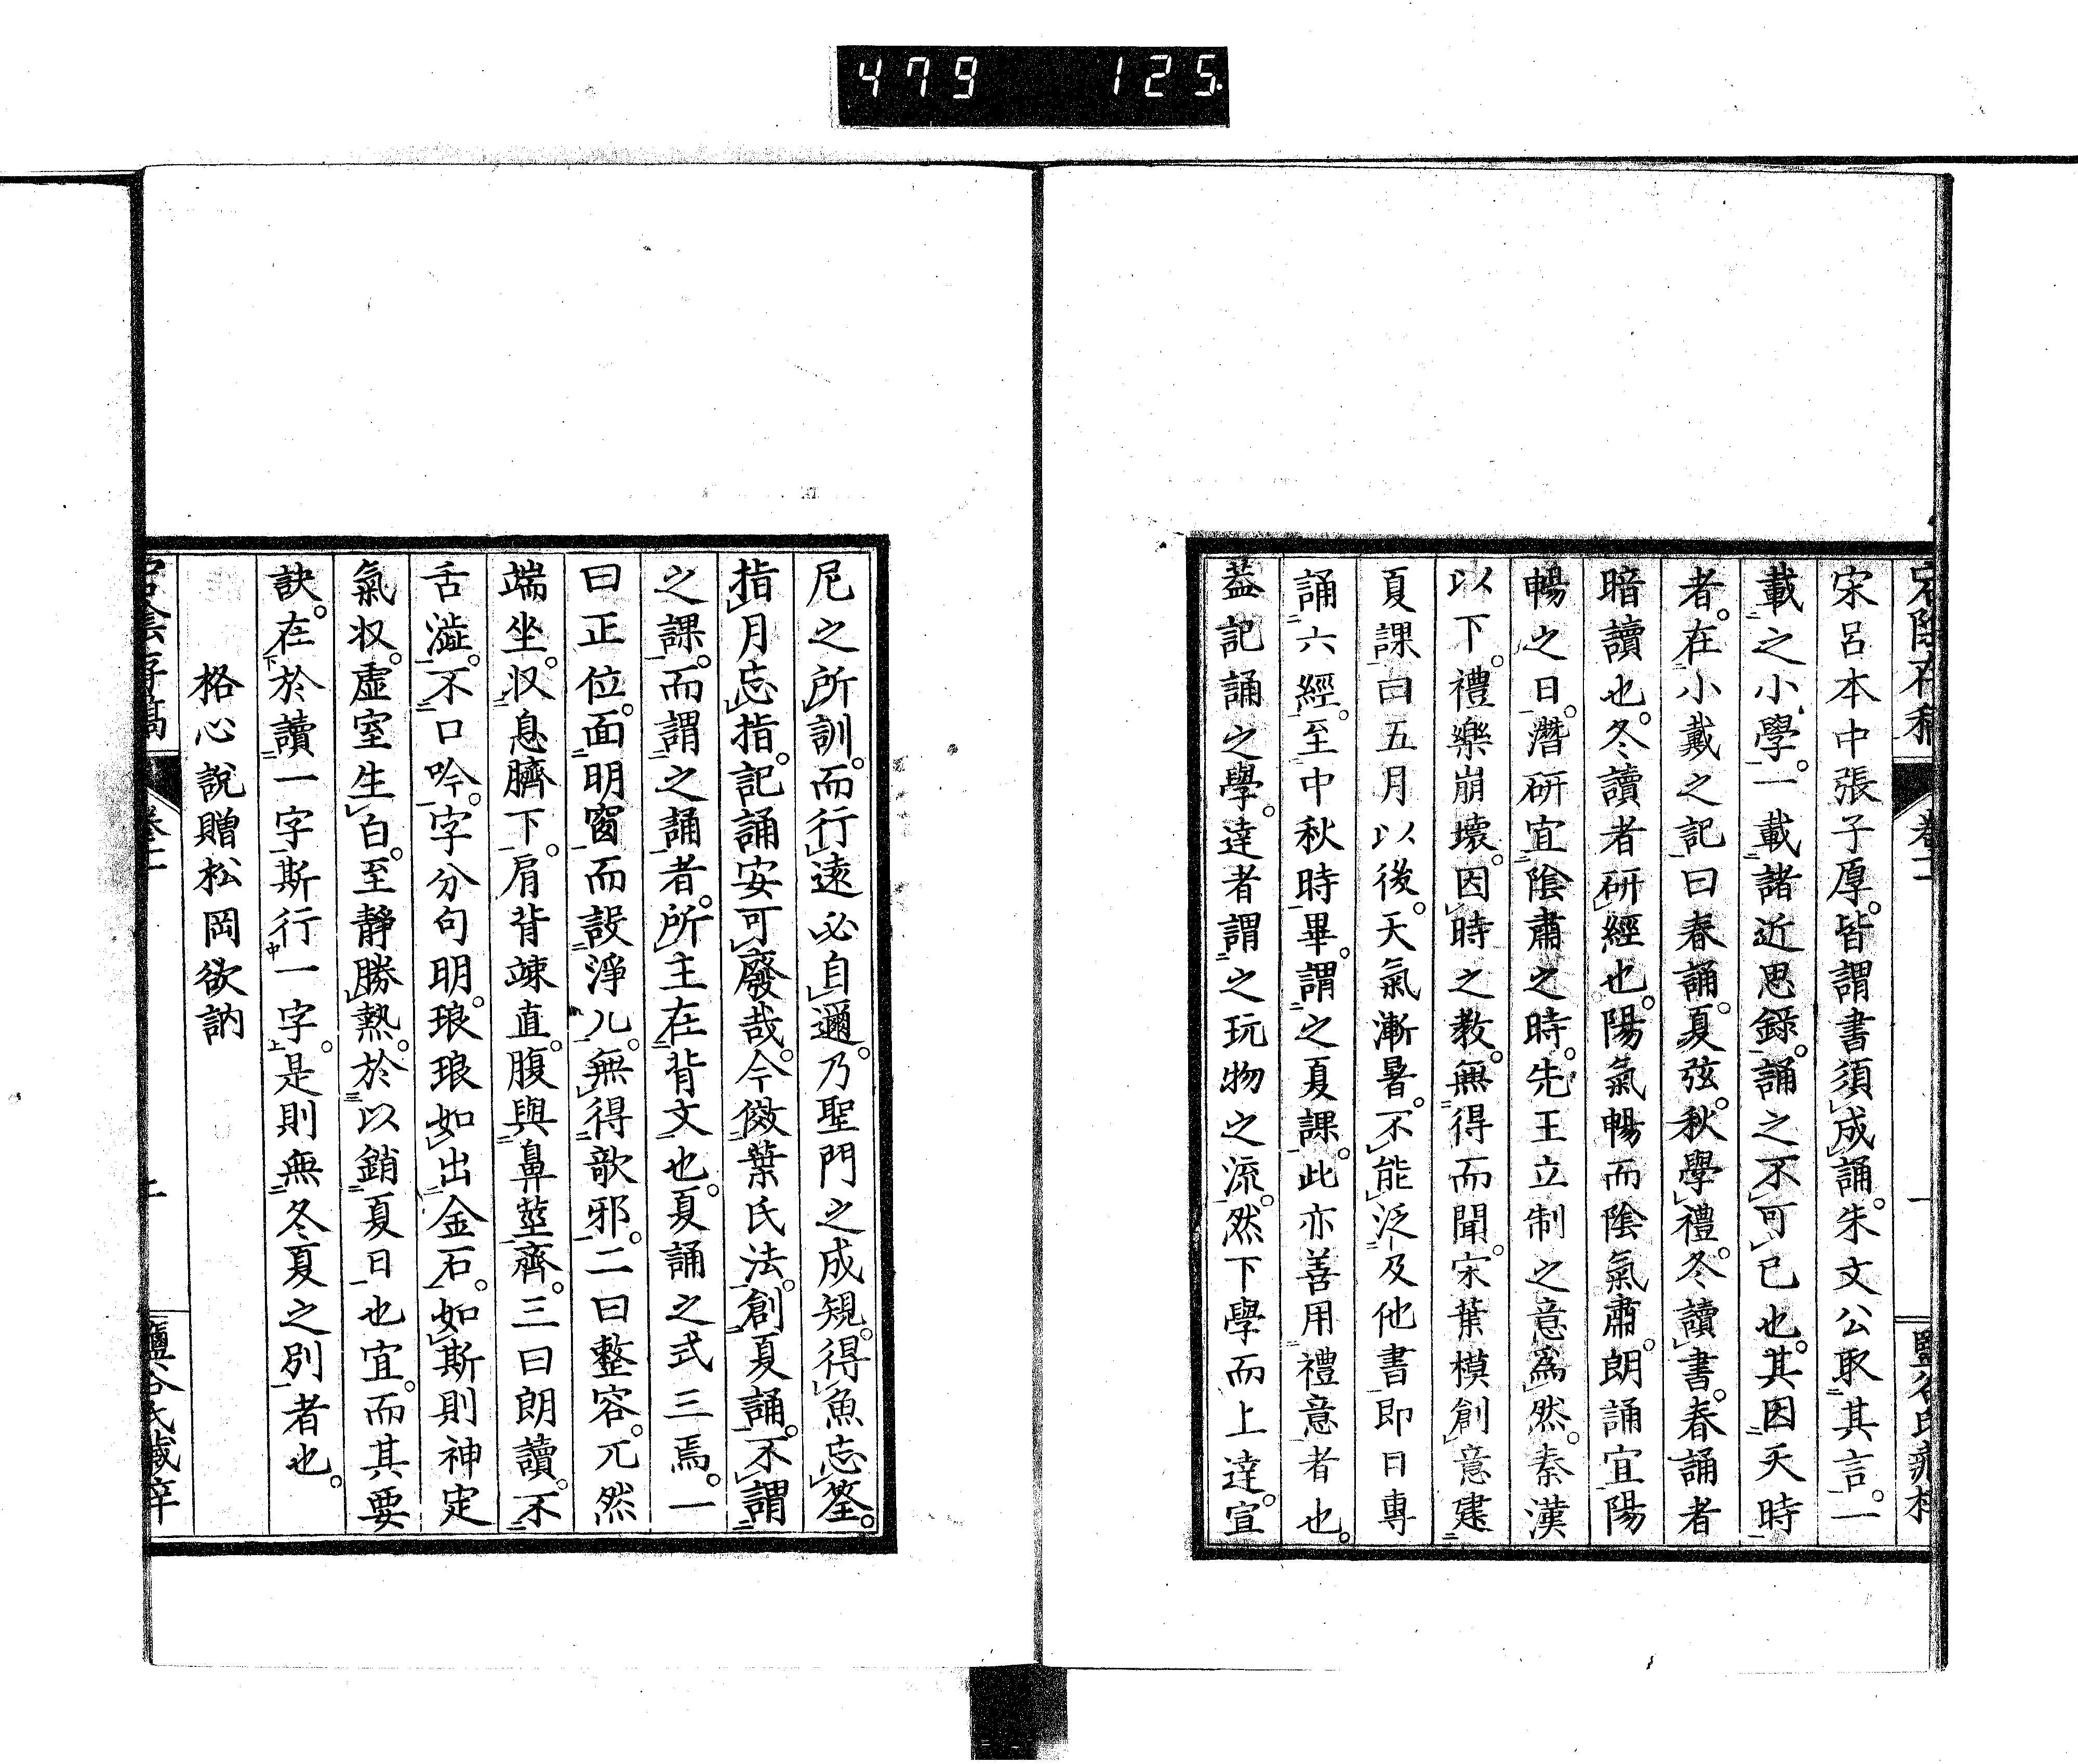 479 125
宋呂本中張子厚。皆謂書須成誦。朱文公取其言。一
載之小學。一載諸近思錄。誦之不可已也。其因天時
者。在小戴之記曰春誦。夏弦。秋學禮。冬讀書。春誦者
暗讀也。冬讀者研經也。陽氣暢而陰氣肅。朗誦宜陽
暢之日。潛研宜陰肅之時。先王立制之意爲然。秦漢
以下。禮樂崩壞。因時之教。無得而聞。宋葉模創意建
夏課曰五月以後。天氣漸暑。不能泛及他書即日專
誦六經。至中秋時畢。謂之夏課。此亦善用禮意者也。
葢記誦之學。達者謂之玩物之流。然下學而上達。宣
尼之所訓。而行遠必自邇。乃聖門之成規。得魚忘筌。
指月忘指。記誦安可廢哉。今倣葉氏法。創夏誦。不謂
之課。而謂之誦者。所主在背文也。夏誦之式三焉。一
曰正位。面明窗而設淨几。無得欹邪。二曰整容。兀然
端坐。収息臍下。肩背竦直。腹與鼻莖齊。三曰朗讀。不
舌澁。不口吟。字分句明。琅琅如出金石。如斯則神定
氣収。虛室生白。至靜勝熱。於以銷夏日也宜。而其要
訣。在於讀一字斯行一字。是則無冬夏之別者也。
格心說贈松岡欲訥